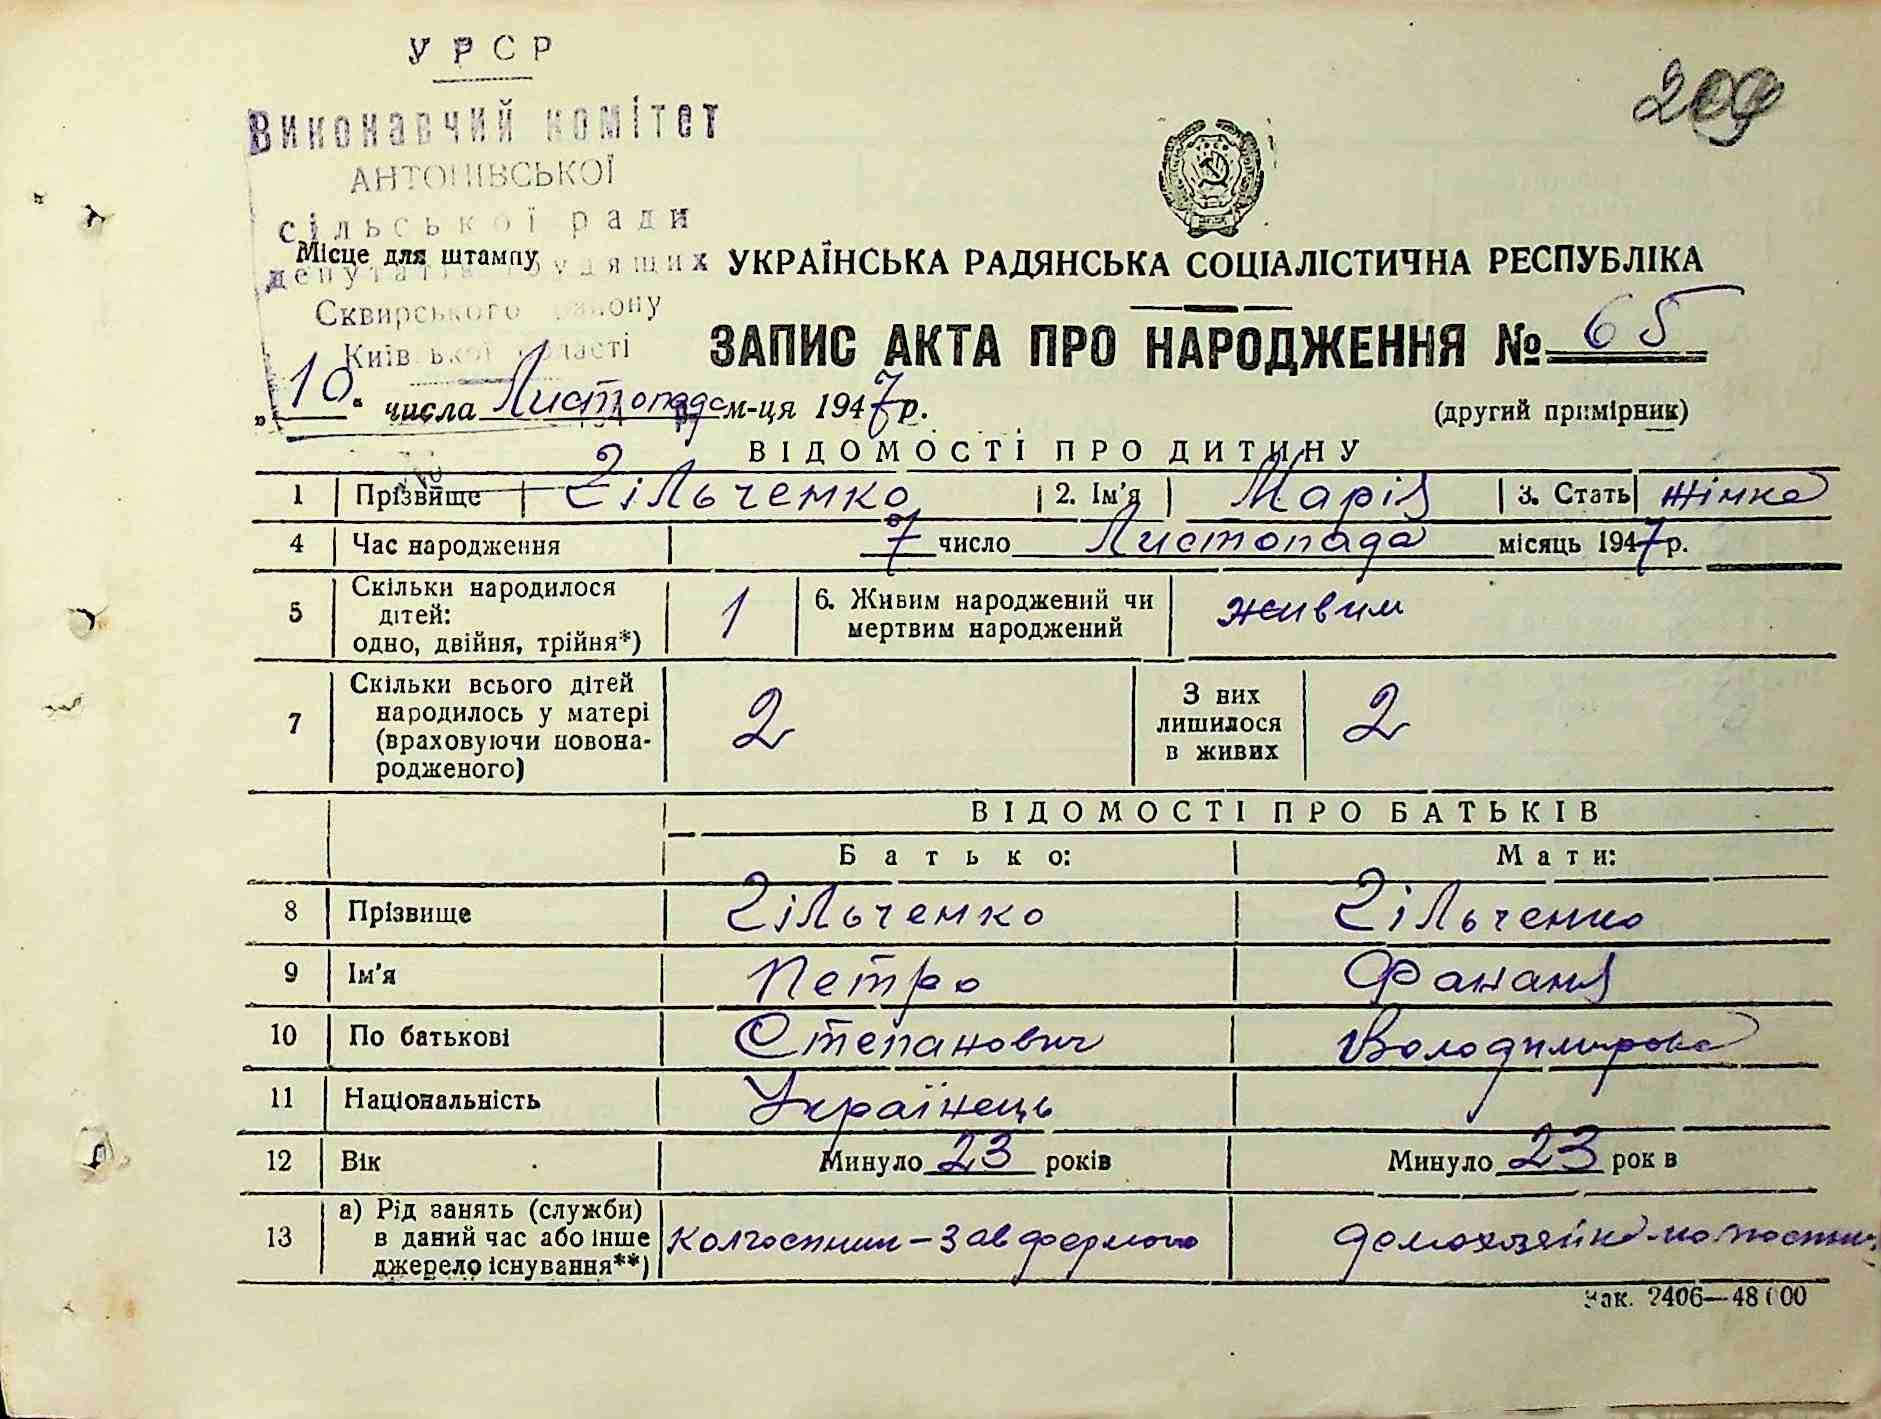 УРСР
209
Виконавчий комітет
АНТОНІВСЬКОЇ
сільської ради
Місце для штампу
депутатів трудящих
УКРАЇНСЬКА РАДЯНСЬКА СОЦІАЛІСТИЧНА РЕСПУБЛІКА
Сквирського району
Київської області
ЗАПИС АКТА ПРО НАРОДЖЕННЯ № 65
„10“ числа Листопада м-ця 1947 р.
(другий примірник)
ВІДОМОСТІ ПРО ДИТИНУ
1 Прізвище Гільченко 2. Ім'я Марія 3. Стать Жінка
4 Час народження 7 число Листопада місяць 1947 р.
5 Скільки народилося дітей: одно, двійня, трійня*) 1 6. Живим народжений чи мертвим народжений живим
7 Скільки всього дітей народилось у матері (враховуючи новонародженого) 2 З них лишилося в живих 2
ВІДОМОСТІ ПРО БАТЬКІВ
Батько: Мати:
8 Прізвище Гільченко Гільченко
9 Ім'я Петро Фананя
10 По батькові Степанович Володимировна
11 Національність Українець
12 Вік Минуло 23 років Минуло 23 рок в
13 а) Рід занять (служби) в даний час або інше джерело існування**) Колгоспник - Зав фермою домохазяйка
Зак. 2406—48000